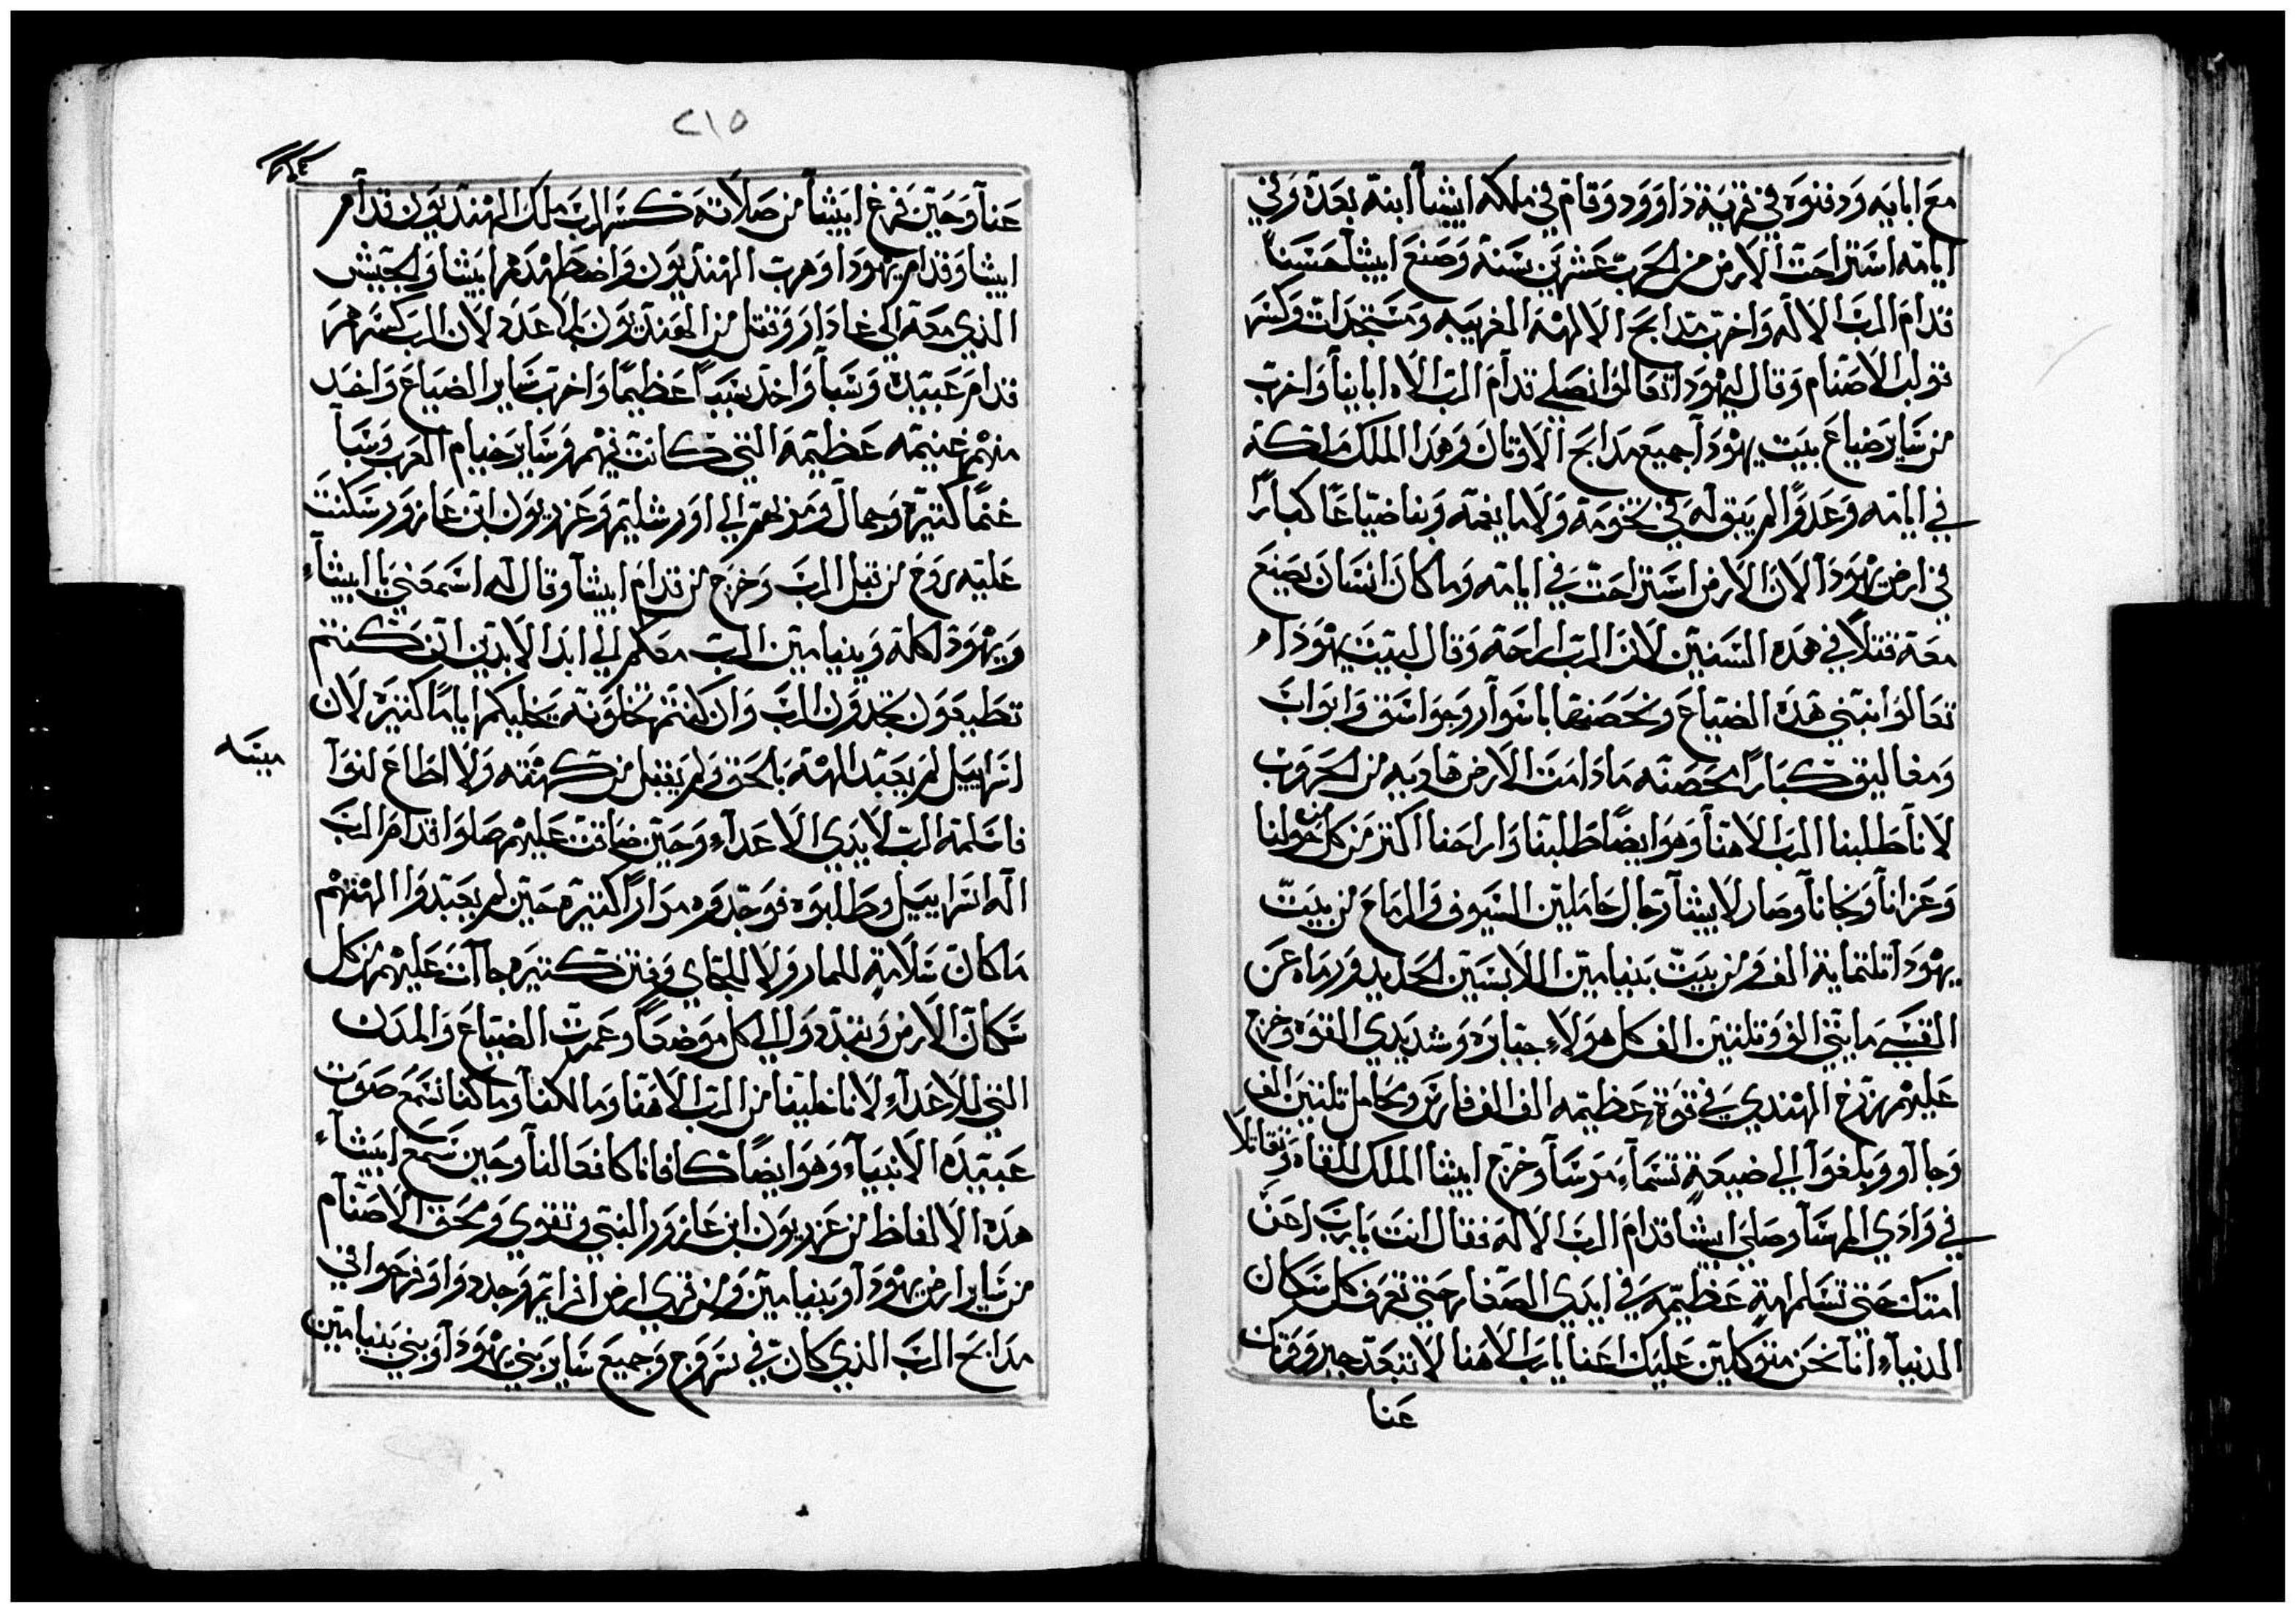 مع ابايه ودفنوه في قرية داوود وقام في ملكه ايشا ابنه بعده وفي
ايامه استراحت الارض من الحرب عشرين سنة وصنع ايشا حسنا
قدام الرب الاله واخرب مدابح الالهة الغريبه ومستجدات وكسر
قوالب الاصنام وقال ليهودا تعالوا نصلي قدام الرب الاه ابائنا واخرب
من ساير ضياع بيت يهودا جميع مدابح الاوتان وهدا الملك ملكه
في ايامه وعدوا لم يبق له في تخومه ولا مايغمه وبنا ضياعا كبارا
في ارض يهودا لان الارض استراحت في ايامه وما كان انسان يصنع
معه قتلا في هده السنين لان الرب اراحه وقال لبيت يهودا
تعالوا نبني هده الضياع ونحصنها باسوار وجواسق وابواب
ومغاليق كبارا محصنه ما دامت الارض هاديه من الحروب
لانا طلبنا الرب الاهنا وهو ايضا طلبنا واراحنا اكتر من كل من حولنا
وعزانا ونجانا وصار لايشا رجال حاملين السيوف والرماح من بيت
يهودا تلتماية الف ومن بيت بنيامين اللابسين الحديد ورماه عن
القسي مايتي الف وتلتين الف كل هولاء جبابره وشديدي القوه وخرج
عليهم زرح الهندي في قوة عظيمه الف الف فارس ومحامل تلتين الف
وجااو وبلغوا الي ضيعة تسماء مرسا وخرج ايشا الملك للقاه وتقاتلا
في وادي المرسا وصلي ايشا قدام الرب الاله فقال انت يارب اعن
امتك حتي تسلم امة عظيمه في ايدي الصغار حتي تعرف كل سكان
الدنياء انا نحن متوكلين عليك اعنا يارب الاهنا لا تبعد جبروتك
عنا
٢١٥
عنا وحين فرغ ايشا من صلاته كسر الرب ملك الهنديون قدام
ايشا وقدام يهودا وهرب الهنديون واضطهدهم ايشا والجيش
الذي معه الي غادار وقتل من الهنديون بلا عدد لان الرب كسرهم
قدام عبيده وسبا واخد سبيا عظيما واخرب ساير الضياع واخد
منهم غنيمه عظيمه التي كانت فيهم وساير خيام العرب وسبا
غنما كتيره وجمال ومن هم الي اورشليم وعزريون ابن عازور سكنت
عليه روح من قبل الرب وخرج من قدام ايشا وقال له اسمعني يا ايشاء
ويهودا كله وبنيامين الرب معكم الي ابد الابدين ان كنتم
تطيعون تجدون الرب وان كنتم تخلونه يخليكم اياما كتيره لان
اسراييل لم يعبد الهه بالحق ولم يقبل من كهنته ولا اطاع لنوا
ميسه
فاسلمه الرب لايدي الاعداء وحين ضاقت عليهم صلوا قدام الرب
اله اسراييل وطلبوه فوجدوه مرارا كتيره حين لم يعبدوا الهتهم
ما كان سلامة للمار ولا للجاي وفتن كتيره جاات عليهم من كل
سكان الارض وتبددوا الي كل موضعا وعمرت الضياع والمدن
التي للاعداء لانا خلينا من الرب الاهنا ومالكنا وما كنا نسمع صوت
عبيده الانبياء وهو ايضا كافانا كافعالنا وحين سمع ايشاء
هده الالفاظ من عزريون ابن عازور النبي وتقوي ومحق الاصنام
من ساير ارض يهودا وبنيامين ومن قري ارض افراتيم وجددوا وفرحوا في
مدابح الرب الذي كان في سروج وجميع ساير بني يهودا وبني بنيامين